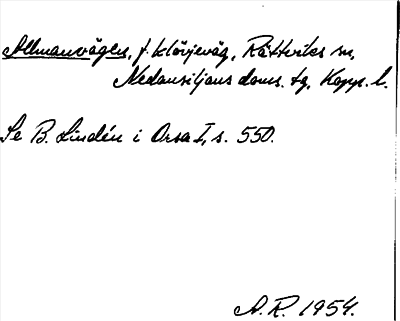 Allmanvägen, f. klövjeväg, Rättviks sn,
Nedansiljans doms. tg, Kopp. l.
Se B. Lindén i Orsa I, s. 550.
A.R. 1954.